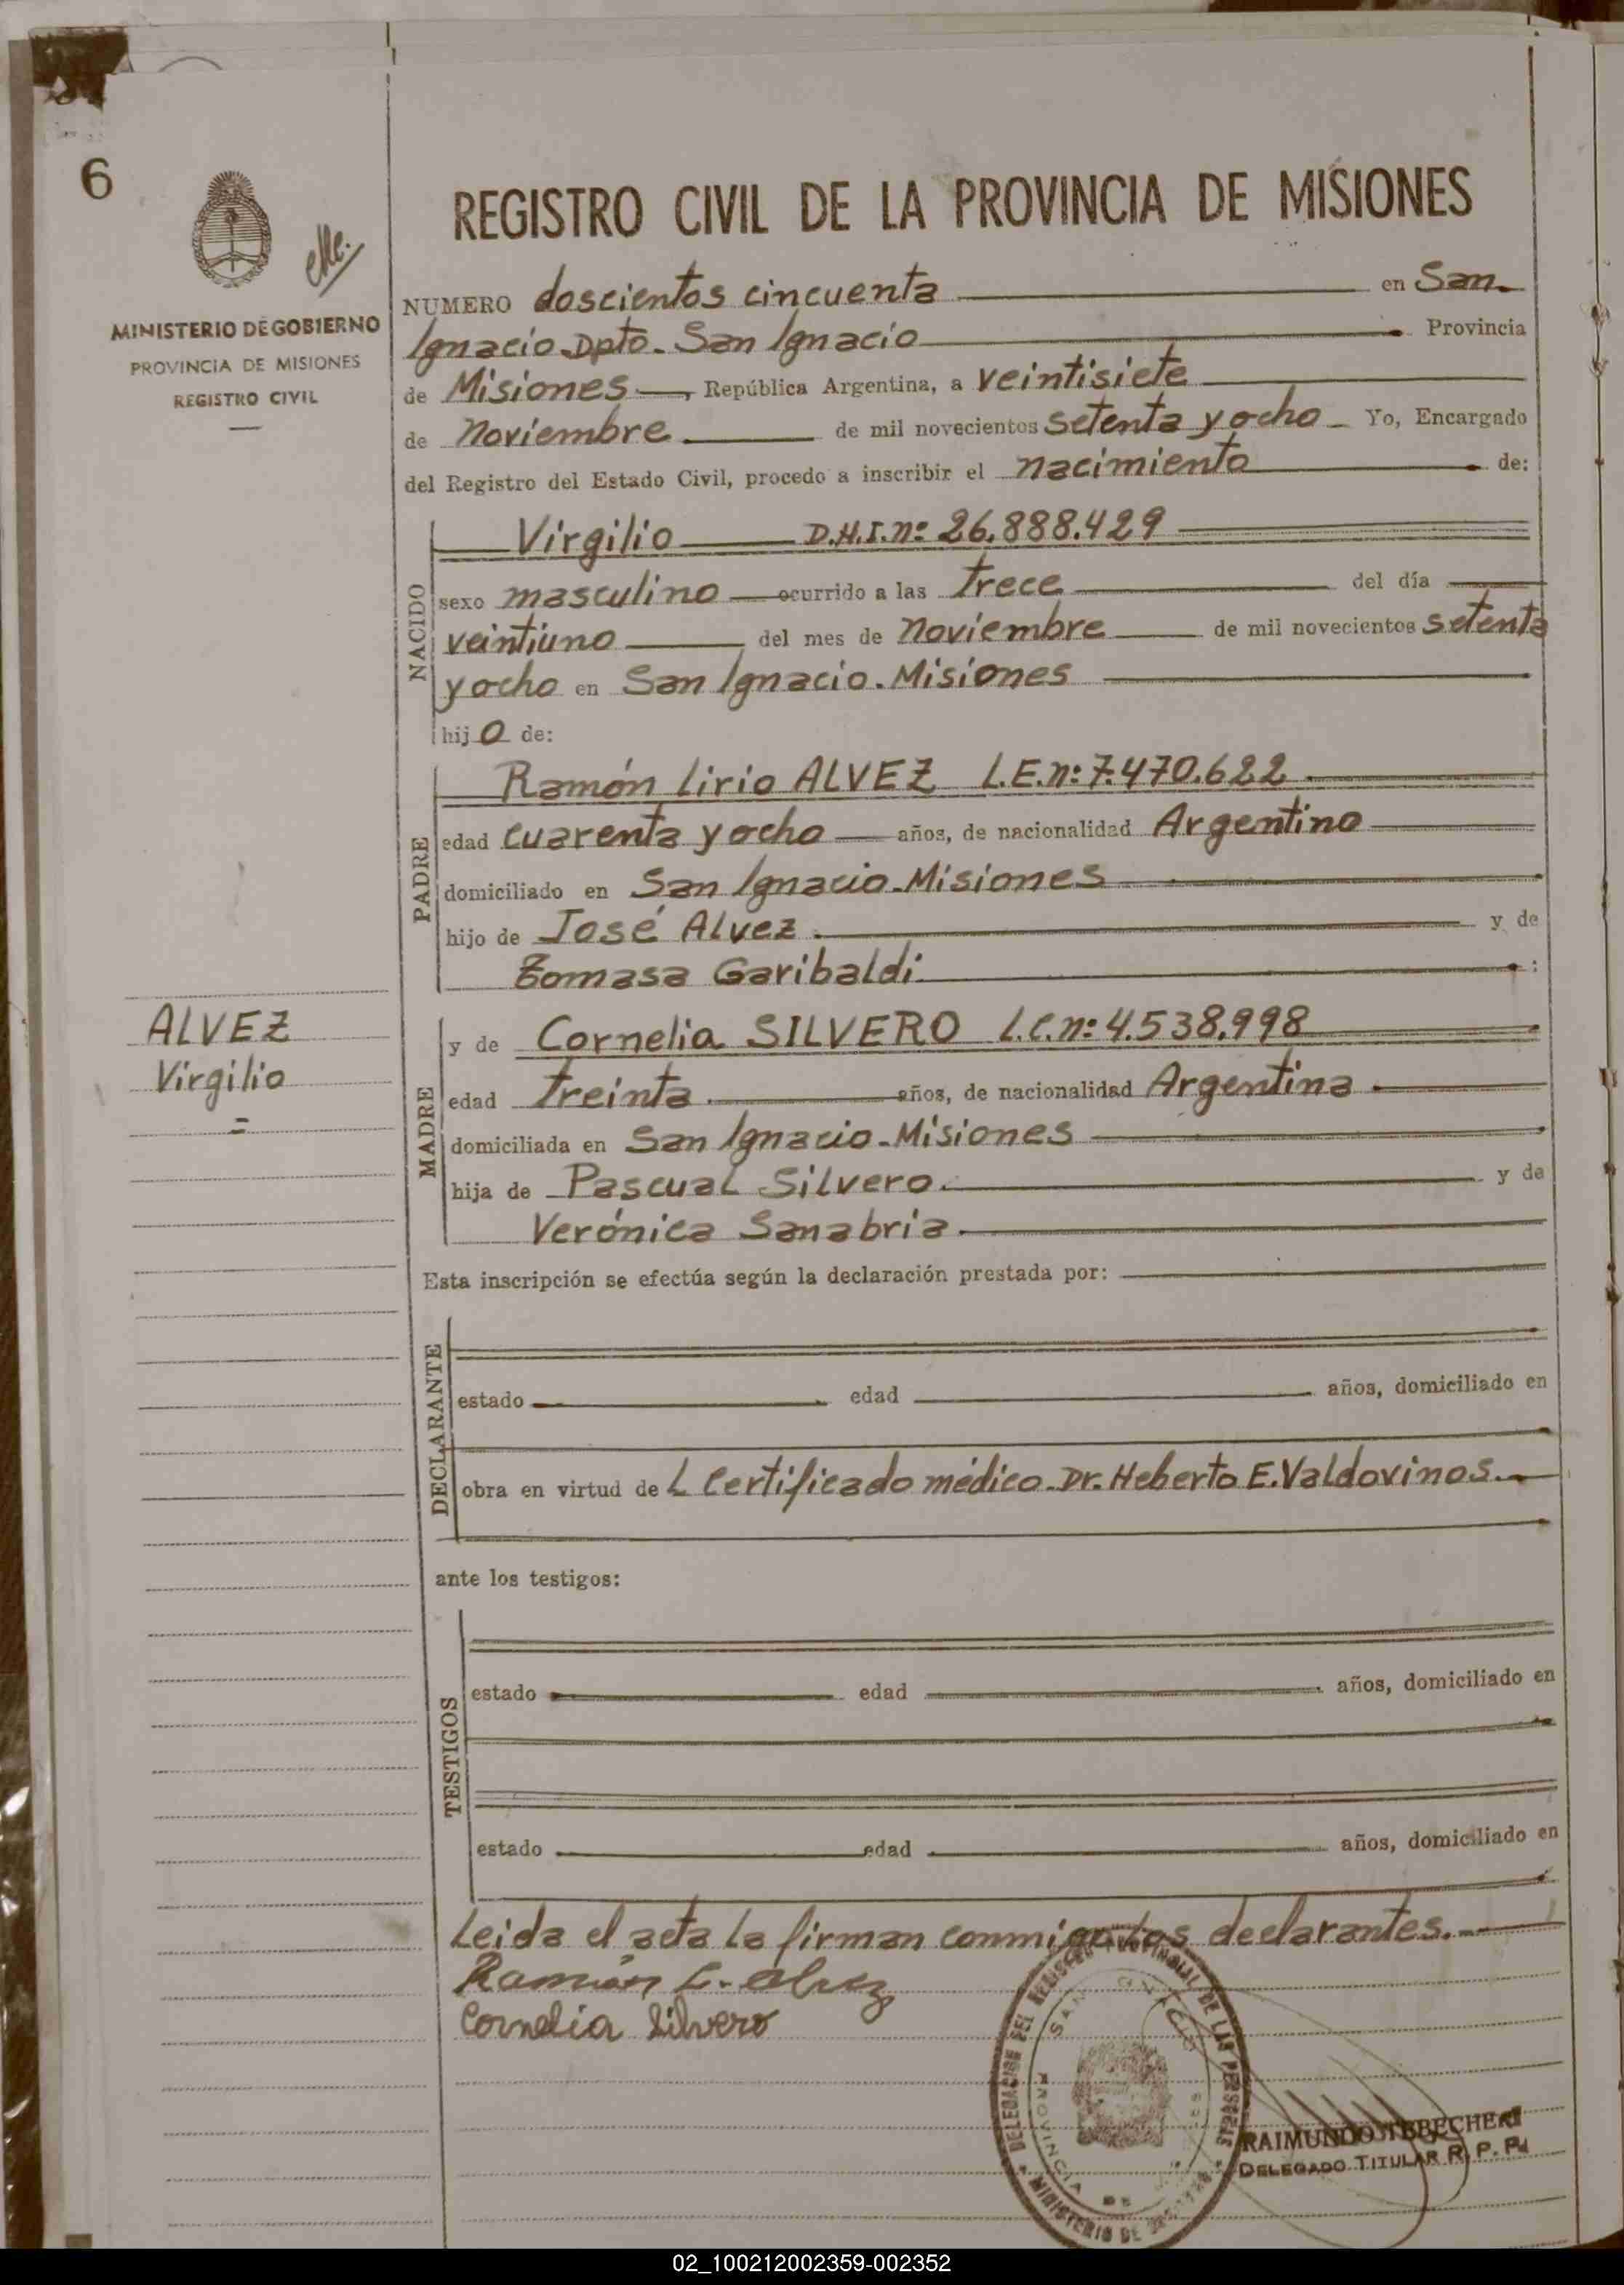 6
MINISTERIO DE GOBIERNO
PROVINCIA DE MISIONES
REGISTRO CIVIL
REGISTRO CIVIL DE LA PROVINCIA DE MISIONES
NUMERO doscientos cincuenta en San
Ignacio Dpto. San Ignacio Provincia
de Misiones, República Argentina, a veintisiete
de noviembre de mil novecientos setenta y ocho Yo, Encargado
del Registro del Estado Civil, procedo a inscribir el nacimiento de:
NACIDO
Virgilio D.N.I. nº 26.888.429
sexo masculino ocurrido a las trece del día
veintiuno del mes de noviembre de mil novecientos setenta
y ocho en San Ignacio. Misiones
hijo de:
PADRE
Ramón Lirio ALVEZ L.E. nº: 7.470.622
edad cuarenta y ocho años, de nacionalidad Argentino
domiciliado en San Ignacio-Misiones
hijo de José Alvez y de
Tomasa Garibaldi :
ALVEZ
Virgilio
=
MADRE
y de Cornelia SILVERO L.C. nº: 4.538.998
edad treinta años, de nacionalidad Argentina
domiciliada en San Ignacio-Misiones
hija de Pascual Silvero. y de
Verónica Sanabria
Esta inscripción se efectúa según la declaración prestada por:
DECLARANTE
estado edad años, domiciliado en
obra en virtud de L Certificado médico. Dr. Heberto E. Valdovinos.
ante los testigos:
TESTIGOS
estado edad años, domiciliado en
estado edad años, domiciliado en
Leida el acta la firman conmigo los declarantes.
Ramón L. Alvez
Cornelia Silvero
DELEGACION DEL REGISTRO PROVINCIAL DE LAS PERSONAS
SAN IGNACIO
PROVINCIA DE
MINISTERIO DE
RAIMUNDO
DELEGADO TITULAR R. P. P.
02_100212002359-002352